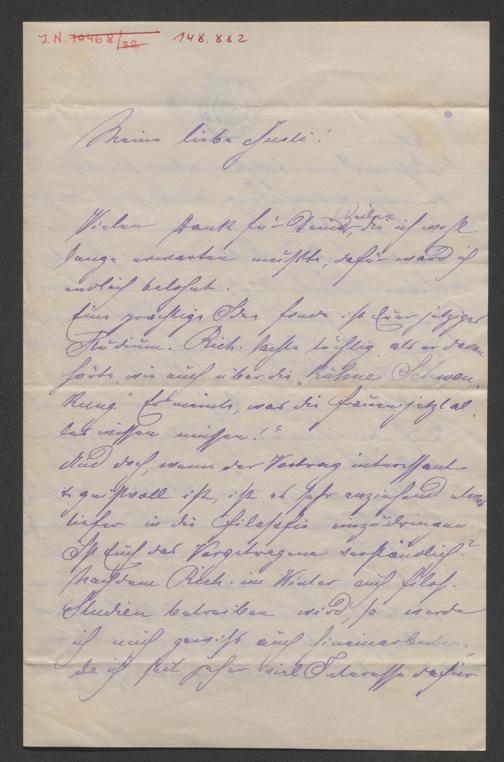 J.N. 70468/72 148.882
Meine liebe Gusti!
Zeilen
Vielen Dank für Deine, die ich wohl
lange erwarten mußte, dafür ward ich
endlich belohnt.
Eine prächtige Idee fande ist Euer jetziges
Studium. Rich. lachte tüchtig, als er davon
hörte, wie auch über die "kühne Schwen-
kung." Er meinte, was die Frauen jetzt al-
les wissen müssen!"
Und doch, wenn der Vortrag interessant
& geistvoll ist, ist es sehr anziehend etwas
tiefer in die Filosofie einzudringen.
Ist Euch das Vorgetragene verständlich?
Nachdem Rich. im Winter auch filos.
Studien betreiben wird, so werde
ich mich gewiß auch hineinarbeiten,
da ich seit jeher viel Interesse dafür